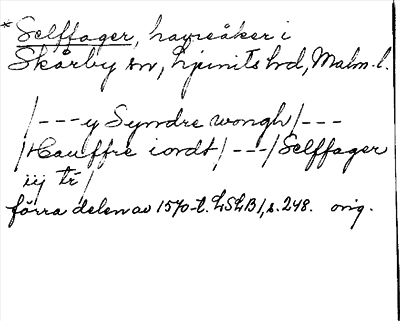 *Selffager, havreåker i
Skårby sn, Ljunits hd, Malm. l.
/---y Syndre wongh/---
/Hauffre iordt/---/Selffager
iij tr̄/
förra delen av 1570-t. LSLB1, s. 248. orig.